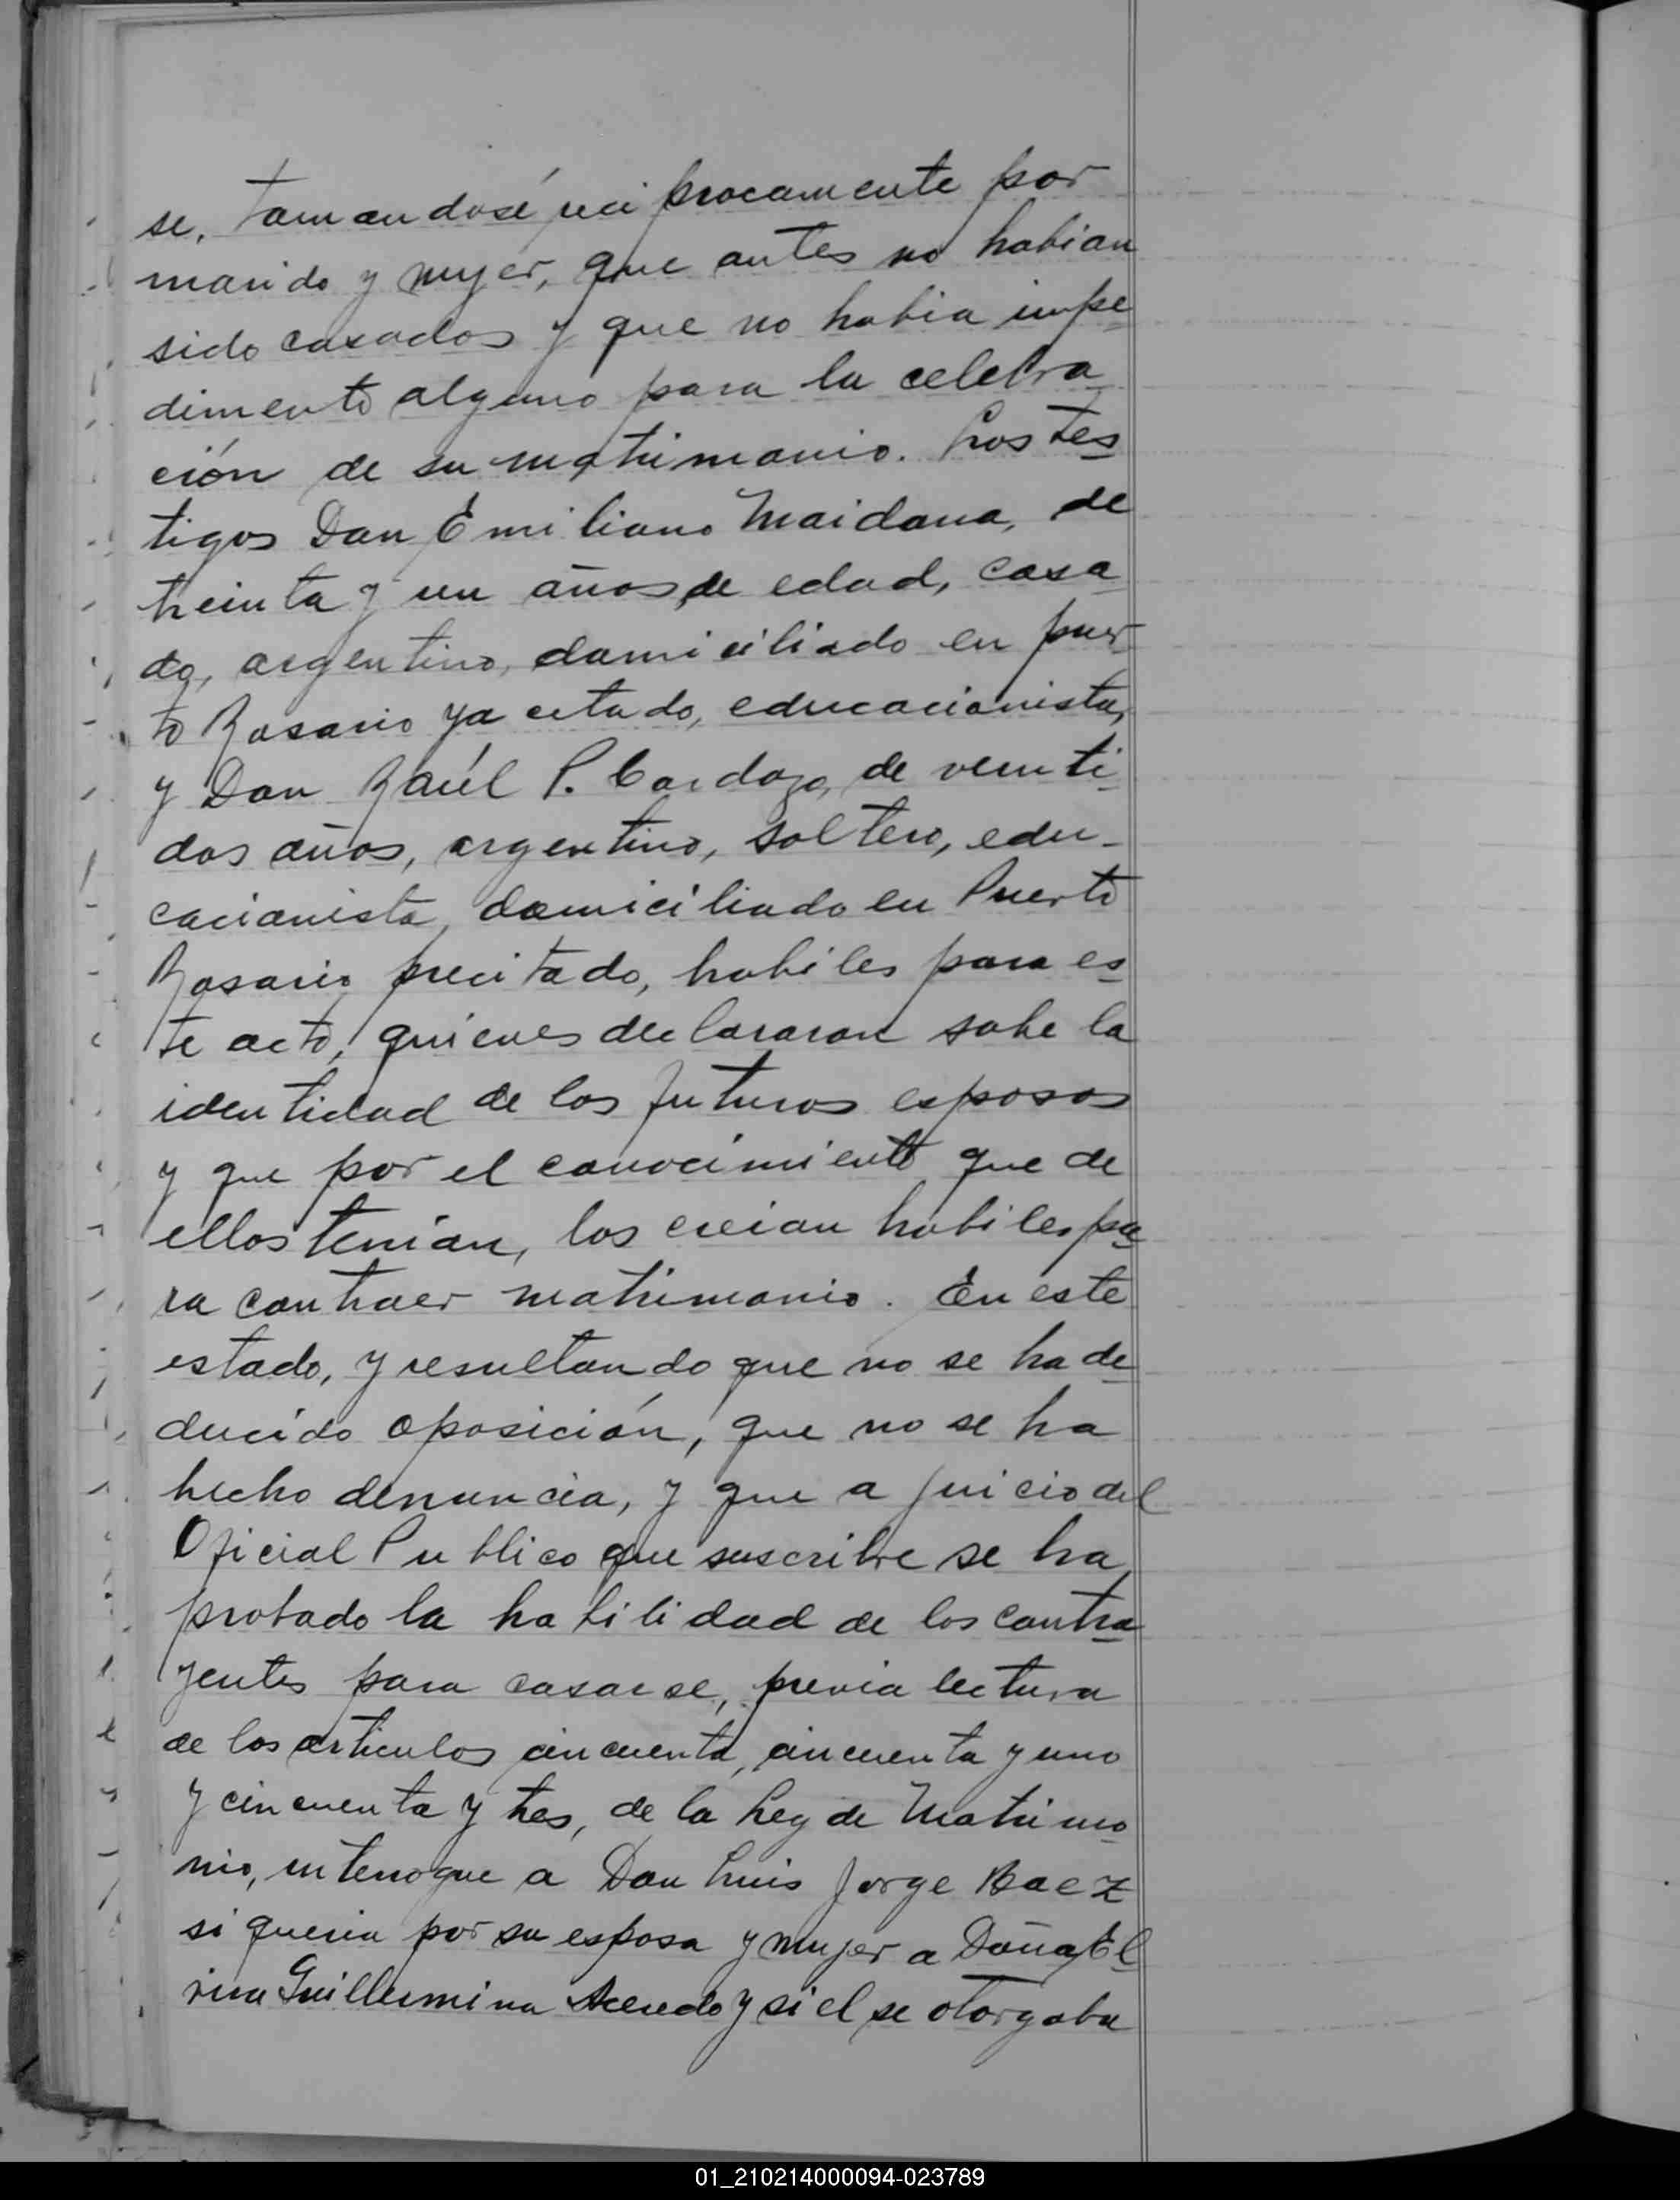 se, tomandosé reciprocamente por
marido y mujer, que antes no habian
sido casados y que no habia impe
dimento alguno para la celebra
ción de su matrimonio. Los tes
tigos Don Emiliano Maidana, de
treinta y un años de edad, casa
do, argentino, domiciliado en puer
to Rosario ya citado, educacionista,
y Don Raúl P. Cardozo, de veinti
dos años, argentino, soltero, edu-
cacionista, domiciliado en Puerto
Rosario precitado, habiles para es
te acto, quienes declararon sobe la
identidad de los futuros esposos
y que por el conocimiento que de
ellos tenían, los creian habiles pa
ra contraer matrimonio. En este
estado, y resultando que no se ha de
ducido oposición, que no se ha
hecho denuncia, y que a juicio del
Oficial Publico que suscribe se ha
probado la habilidad de los contra
yentes para casarse, previa lectura
de los articulos cincuenta, cincuenta y uno
y cincuenta y tres, de la Ley de Matrimo
nio, interrogue a Don Luis Jorge Baez
si queria por su esposa y mujer a Doña El
vira Guillermina Acevedo y si el se otorgaba
01_210214000094-023789